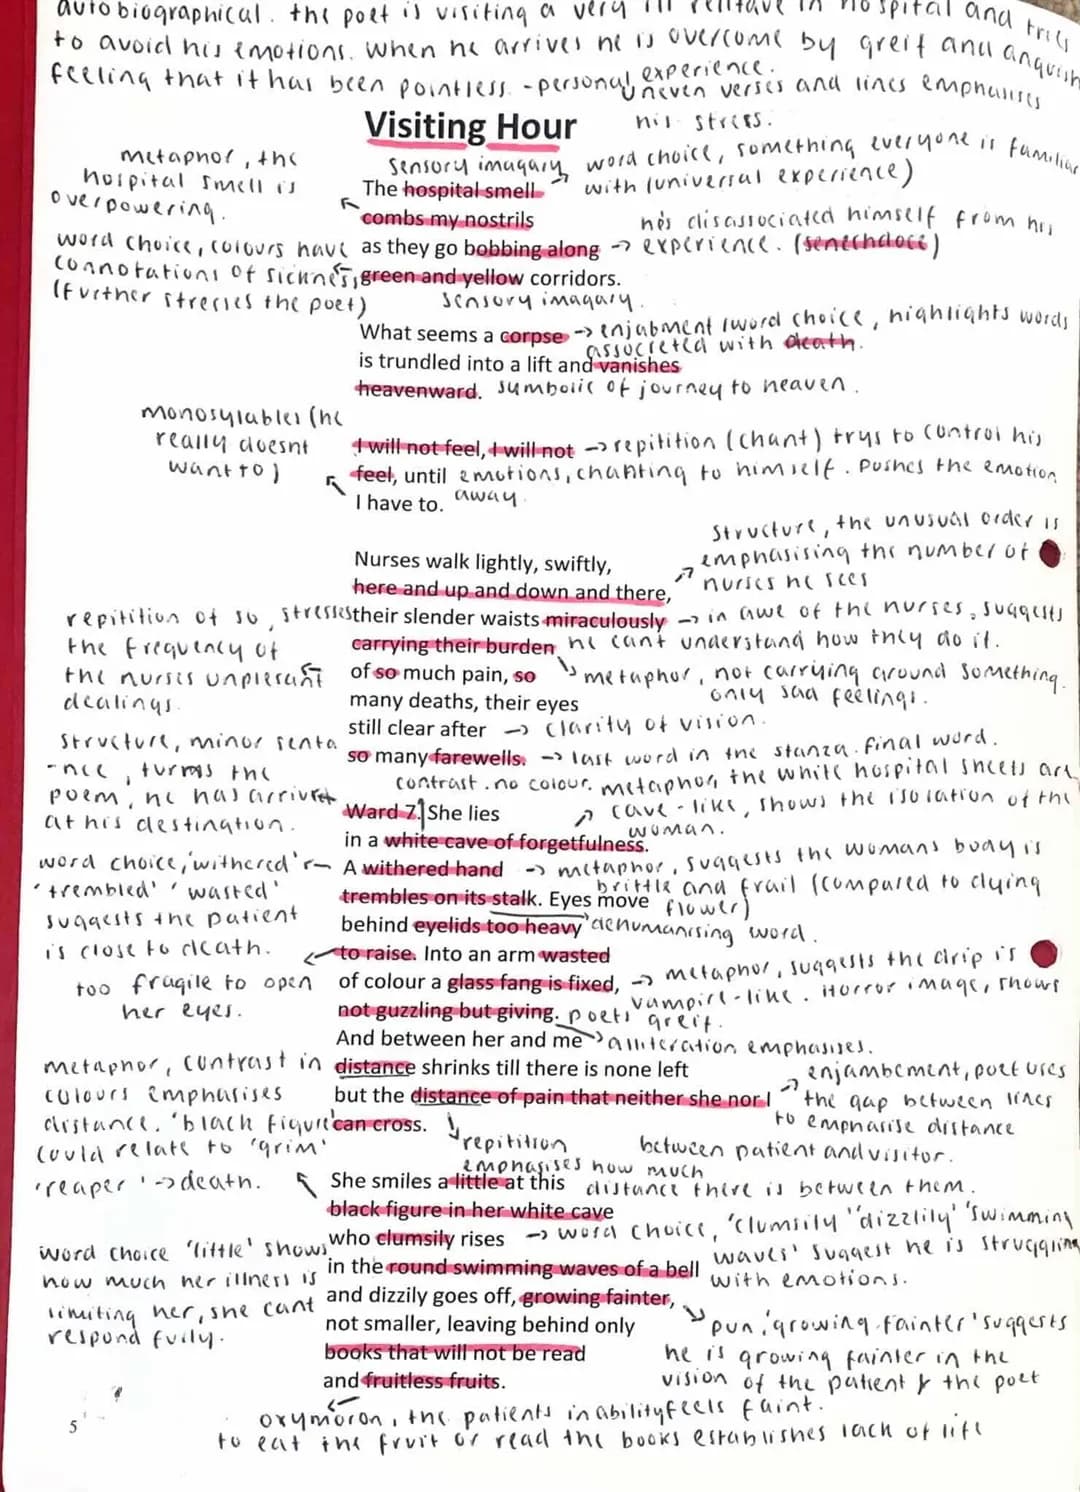 autobiographical. the poet is visiting a very ill relitave in hospital and tries
to avoid his emotions. when he arrives he is overcome by greif and anguish
feeling that it has been pointless. -personal experience.
uneven verses and lines emphasises
his stress.
Visiting Hour
metaphor, the
hospital smell is
overpowering.
sensory imagary
word choice, something everyone is familiar
with (universal experience)
The hospital smell
combs my nostrils
he's disassociated himself from his
as they go bobbing along → experience. (senechdoce)
word choice, colours have
connotations of sickness,
(further stresses the poet)
green and yellow corridors.
sensory imagary.
What seems a corpse → enjabment/word choice, highlights words
assocreted with death.
is trundled into a lift and vanishes
heavenward. symbolic of journey to heaven.
monosylables (he
really doesnt
want to)
I will not feel, I will not → repitition (chant) trys to control his
feel, until emotions, chanting to himself. Pushes the emotion
I have to. away.
structure, the unusual order is
emphasising the number of
nurses he sees
Nurses walk lightly, swiftly,
here and up and down and there,
repitition of so, stresses
the frequency of
the nurses unplesant
dealings.
their slender waists miraculously → in awe of the nurses, suggests
carrying their burden he cant understand how they do it.
of so much pain, so metaphor, not carrying around something.
only sad feelings.
many deaths, their eyes
still clear after → clarity of vision.
so many farewells. → last word in the stanza. final word.
structure, minor senta
-nce, turns the
poem, he has arrived
at his destination.
contrast. no colour. metaphor, the white hospital sheets are
cave-like, shows the isolation of the
woman.
Ward 7. She lies
in a white cave of forgetfulness.
word choice, 'withered'
'trembled' 'wasted'
suggests the patient
is close to death.
A withered hand → metaphor, suggests the womans body is
brittle and frail (compared to dying
flower)
trembles on its stalk. Eyes move
behind eyelids too heavy dehumanising word.
to raise. Into an arm wasted
too fragile to open
her eyes.
of colour a glass fang is fixed, → metaphor, suggests the drip is
vampire-like. Horror image, shows
poets greif.
not guzzling but giving.
And between her and me alliteration emphasises.
metaphor, contrast in
colours emphasises
distance. 'black figure'
could relate to 'grim'
'reaper' → death.
distance shrinks till there is none left
but the distance of pain that neither she nor I
can cross.
enjambement, poet uses
the gap between lines
to emphasise distance
between patient and visitor.
repitition
emphasises how much
distance there is between them.
She smiles a little at this
black figure in her white cave
who clumsily rises → word choice, 'clumsily' 'dizzlily' 'swimming
waves' suggest he is struggling
with emotions.
word choice 'little' shows
how much her illness is
limiting her, she cant
respond fully.
in the round swimming waves of a bell
and dizzily goes off, growing fainter,
not smaller, leaving behind only
books that will not be read
and fruitless fruits.
pun, 'growing fainter' suggests
he is growing fainter in the
vision of the patient & the poet
feels faint.
oxymoron, the patients inability
to eat the fruit or read the books establishes lack of life
5